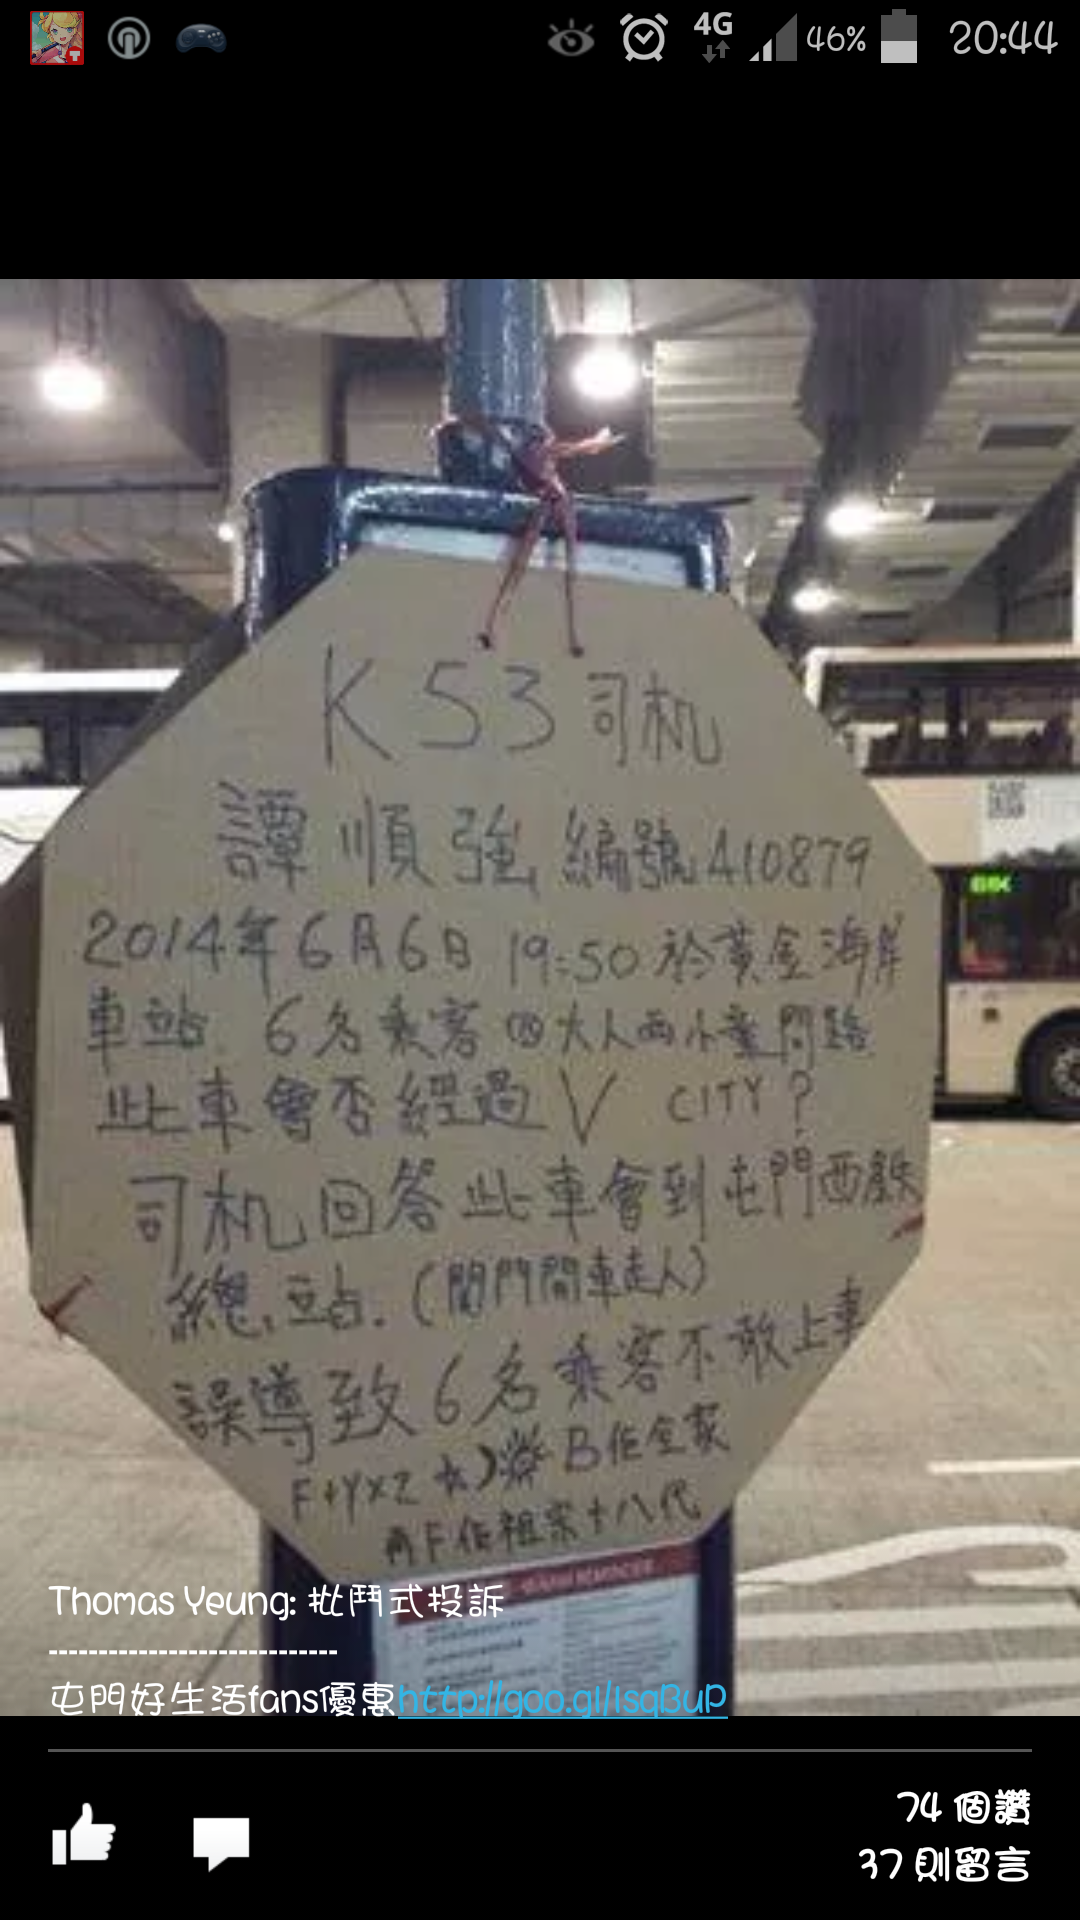 4G
46%
20:44
K53司机
譚順強 編號A10879
2014年6月6日 19:50於黃金海岸
車站 6名乘客 大人兩小童問路
此車會否經過V CITY?
司机回答此車會到屯門西鉄
總站.(関門開車走人)
誤導致6名乘客不敢上車
F+YXZ B佢全家
再F佢祖宗十八代
Thomas Yeung: 批鬥式投訴
----------------------------
屯門好生活fans優惠http://goo.gl/1sqBuP
74 個讚
37 則留言